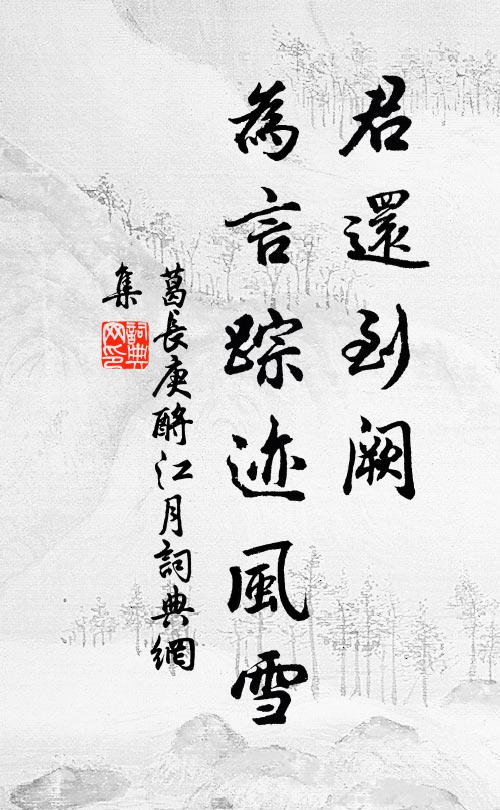 君還到闕
為言踪迹風雪
葛長庚酹江月詞典網
集
詞典
网印